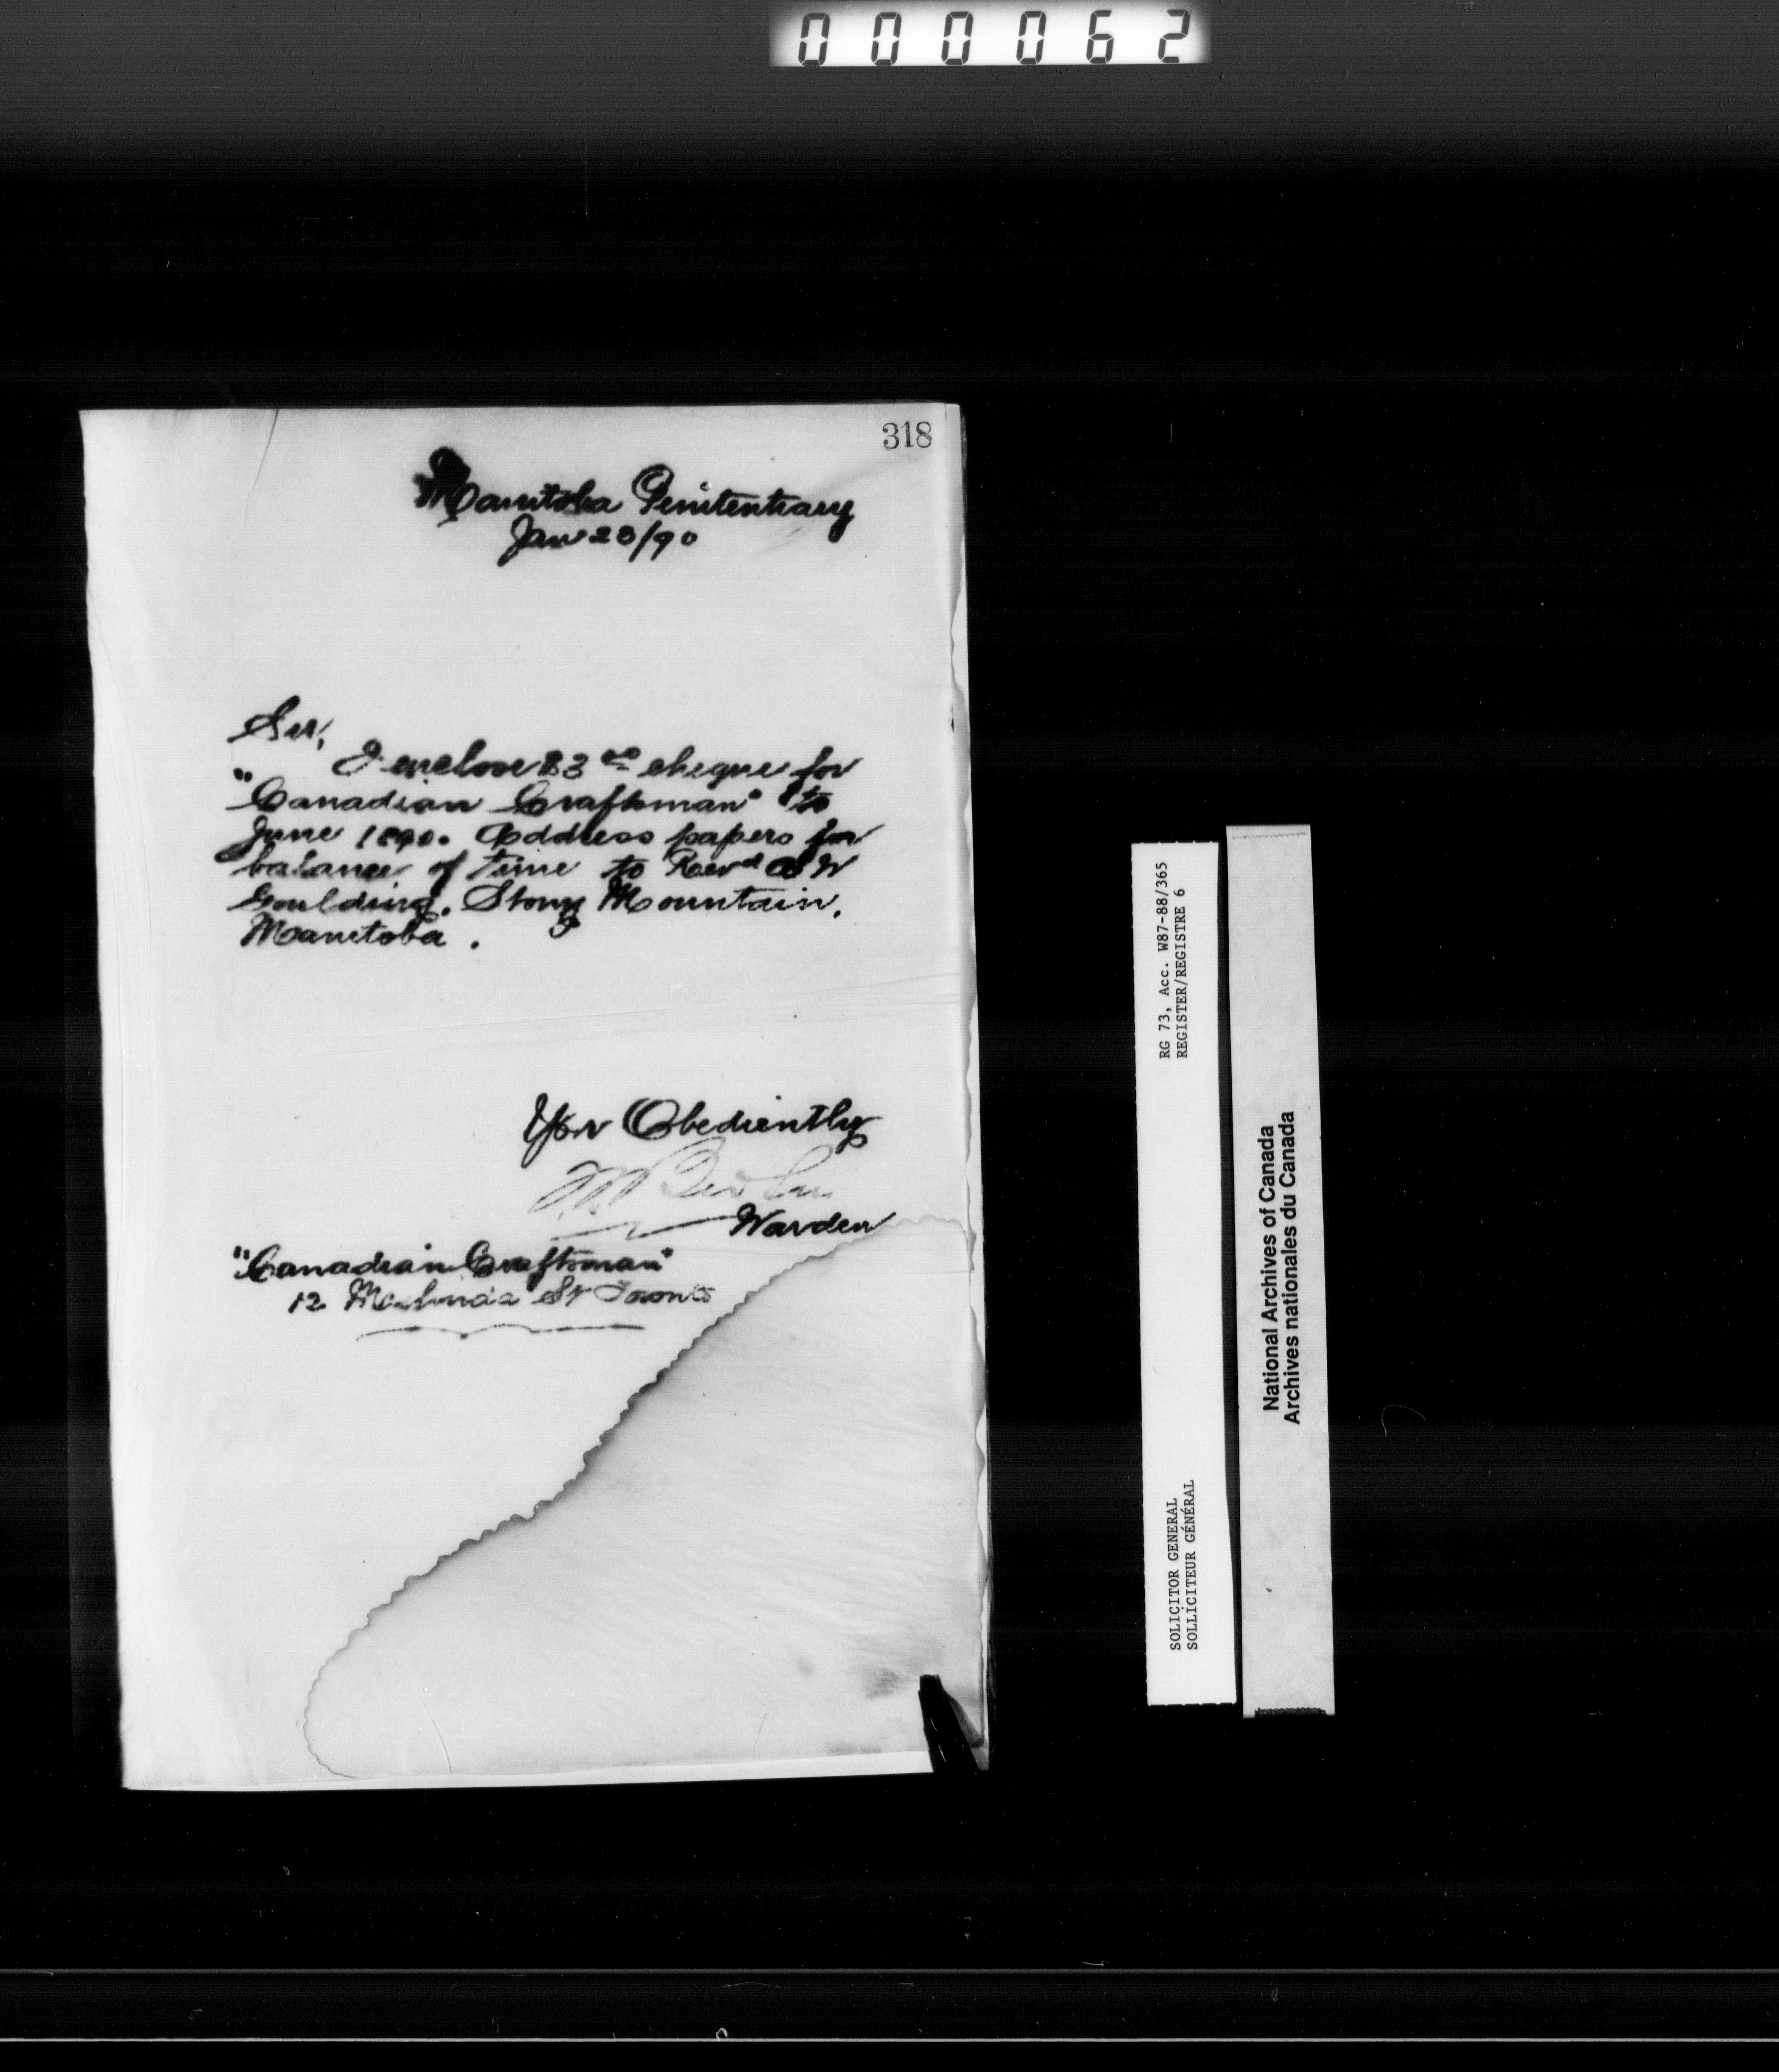 000062
318
Manitoba Penitentiary
Jan 23/90
Sir,
I enclose $3 00 cheque for
"Canadian Craftsman" to
June 1890. Address papers for
balance of time to Revd W
Goulding. Stony Mountain.
Manitoba.
Yor Obediently
Warden
"Canadian Craftsman"
12 St Toronto
RG 73, Acc. W87-88/365
REGISTER/REGISTRE 6
SOLICITOR GENERAL
SOLLICITEUR GÉNÉRAL
National Archives of Canada
Archives nationales du Canada